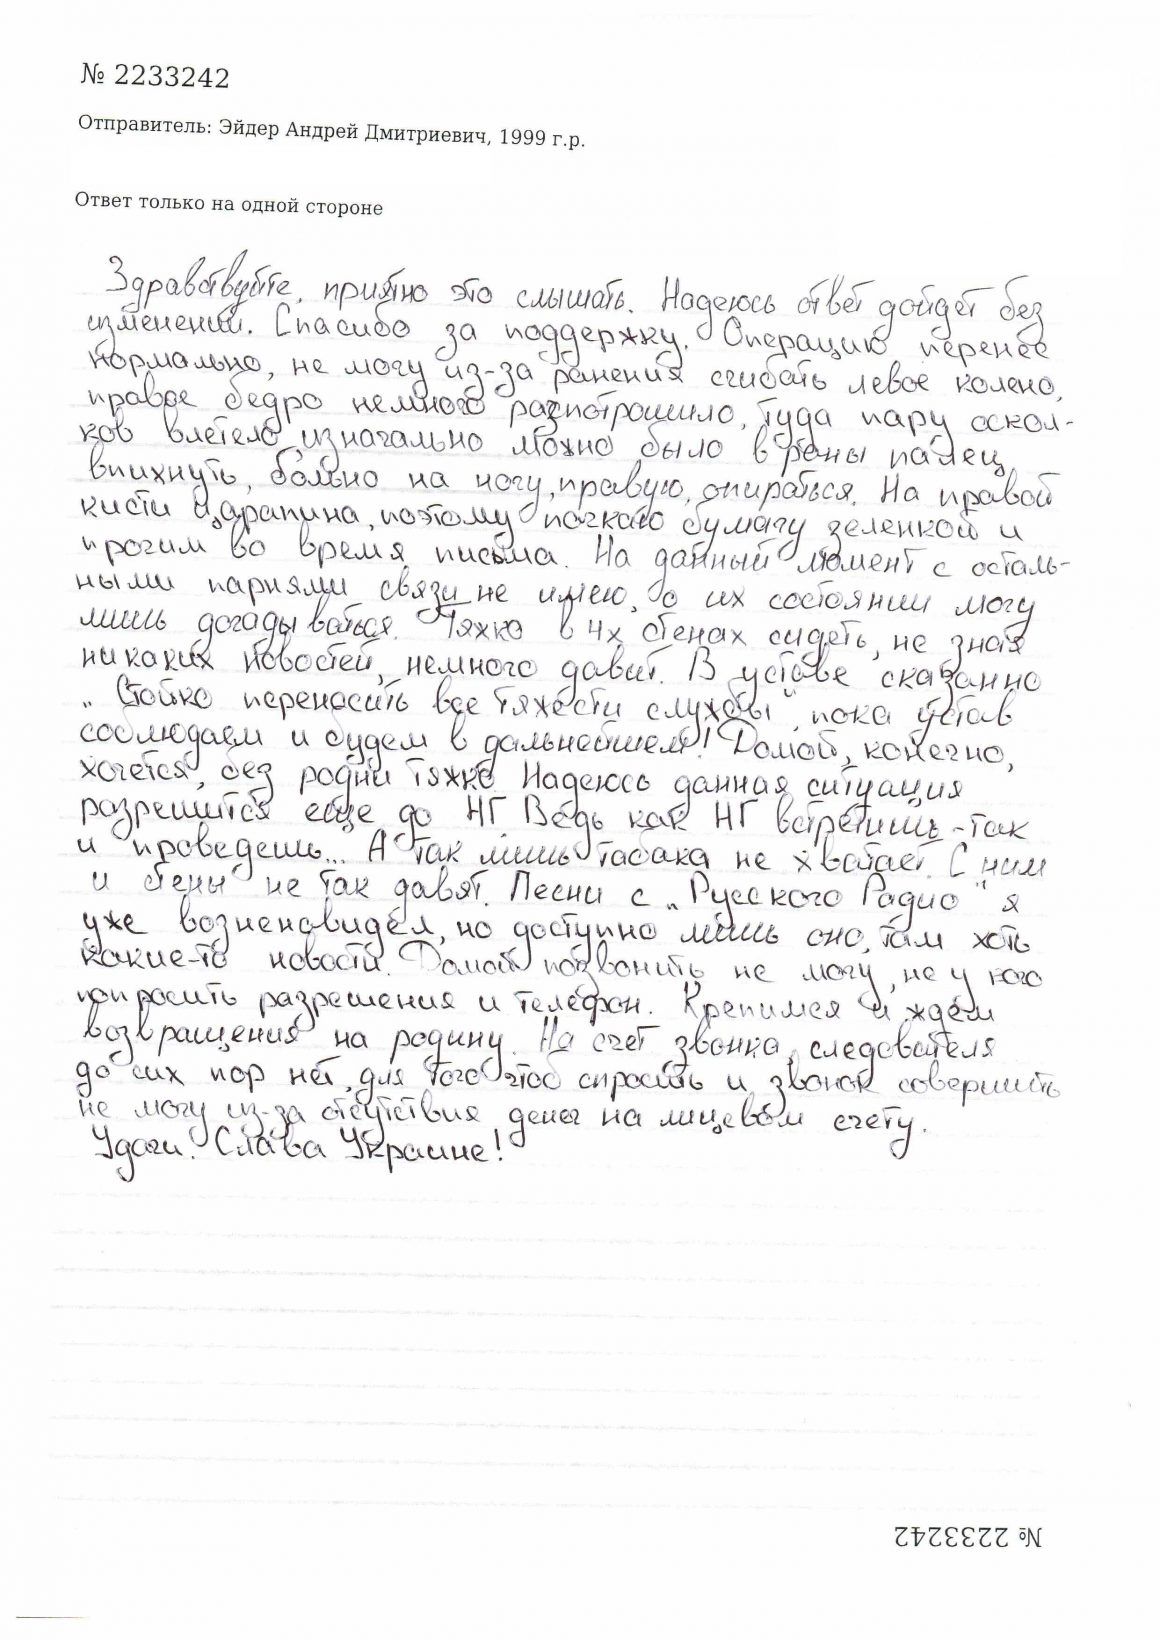 № 2233242
Отправитель: Эйдер Андрей Дмитриевич, 1999 г.р.
Ответ только на одной стороне
Здравствуйте, приятно это слышать. Надеюсь ответ дойдет без
изменений. Спасибо за поддержку. Операцию перенес
нормально, не могу из-за ранения сгибать левое колено,
правое бедро немного распотрошило, туда пару оскол-
ков влетело, изначально можно было в раны палец
впихнуть, больно на ногу, правую, опираться. На правой
кисти царапина, поэтому пачкаю бумагу зеленкой и
прочим во время письма. На данный момент с осталь-
ными парнями связи не имею, о их состоянии могу
лишь догадываться. Тяжко в 4х стенах сидеть, не зная
никаких новостей, немного давит. В уставе сказанно
„Стойко переносить все тяжести службы", пока устав
соблюдаем и будем в дальнейшем! Домой, конечно,
хочется, без родни тяжко. Надеюсь данная ситуация
разрешится еще до НГ Ведь как НГ встретишь - так
и проведешь... А так лишь табака не хватает. С ним
и стены не так давят. Песни с „Русского Радио" я
уже возненавидел, но доступно лишь оно, там хоть
какие-то новости. Домой позвонить не могу, не у кого
попросить разрешения и телефон. Крепимся и ждем
возвращения на родину. На счет звонка, следователя
до сих пор нет, для того чтоб спросить и звонок совершить
не могу из-за отсутствия денег на лицевом счету.
Удачи. Слава Украине!
№ 2233242